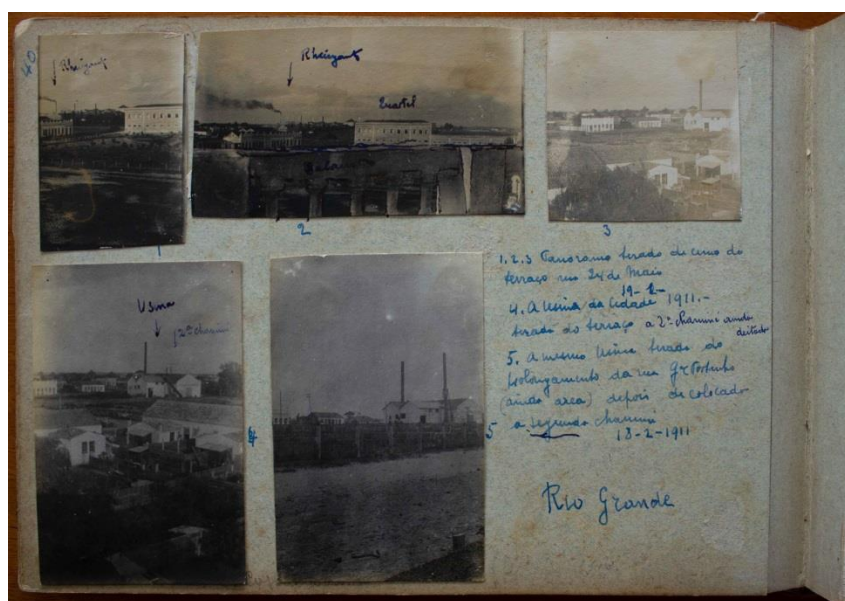 40
Rheingant
Rheingant
Quartel
1
2
3
Usina
2ª chaminé
4
5
1.2.3 Panorama tirado de cima do
terraço rua 24 de Maio
19-2-
4. A Usina da Cidade 1911.-
tirado do terraço a 2ª chaminé ainda
deitada
5. A mesma Usina tirada do
prolongamento da rua Gl Portinho
(ainda area) depois de colocada
a segunda chaminé
18-2-1911
Rio Grande